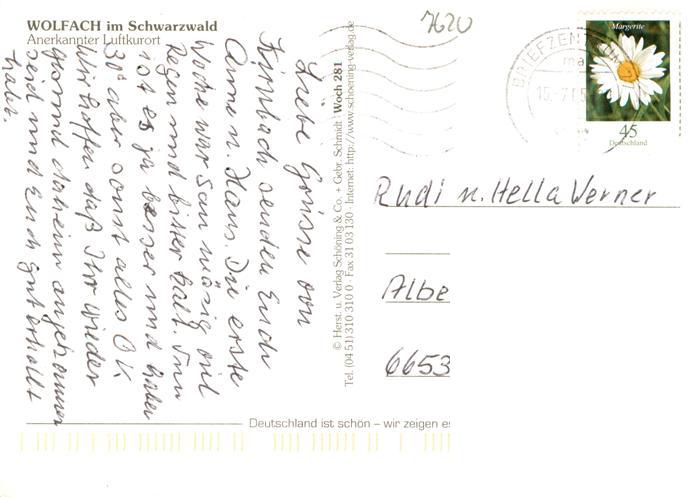 WOLFACH im Schwarzwald
Anerkannter Luftkurort
7620
Margerite
45
Deutschland
BRIEFZENTRUM
Liebe Grüsse von
Kirnbach senden Euch
Anne u. Hans. Die erste
Woche war sau mäsig viel
Regen und bitter kalt. Nun
ist es ja besser und haben
31° aber sonst alles O K
Wir hoffen daß Ihr wieder
gesund daheim angekommen
seid und Euch gut erholt
habt.
© Herst. u. Verlag Schöning & Co. + Gebr. Schmidt · Woch 281
Tel. (04 51) 310 310 0 · Fax 31 03 130 · Internet: http://www.schoening-verlag.de
Rudi u. Hella Werner
Albe
6653
Deutschland ist schön – wir zeigen es